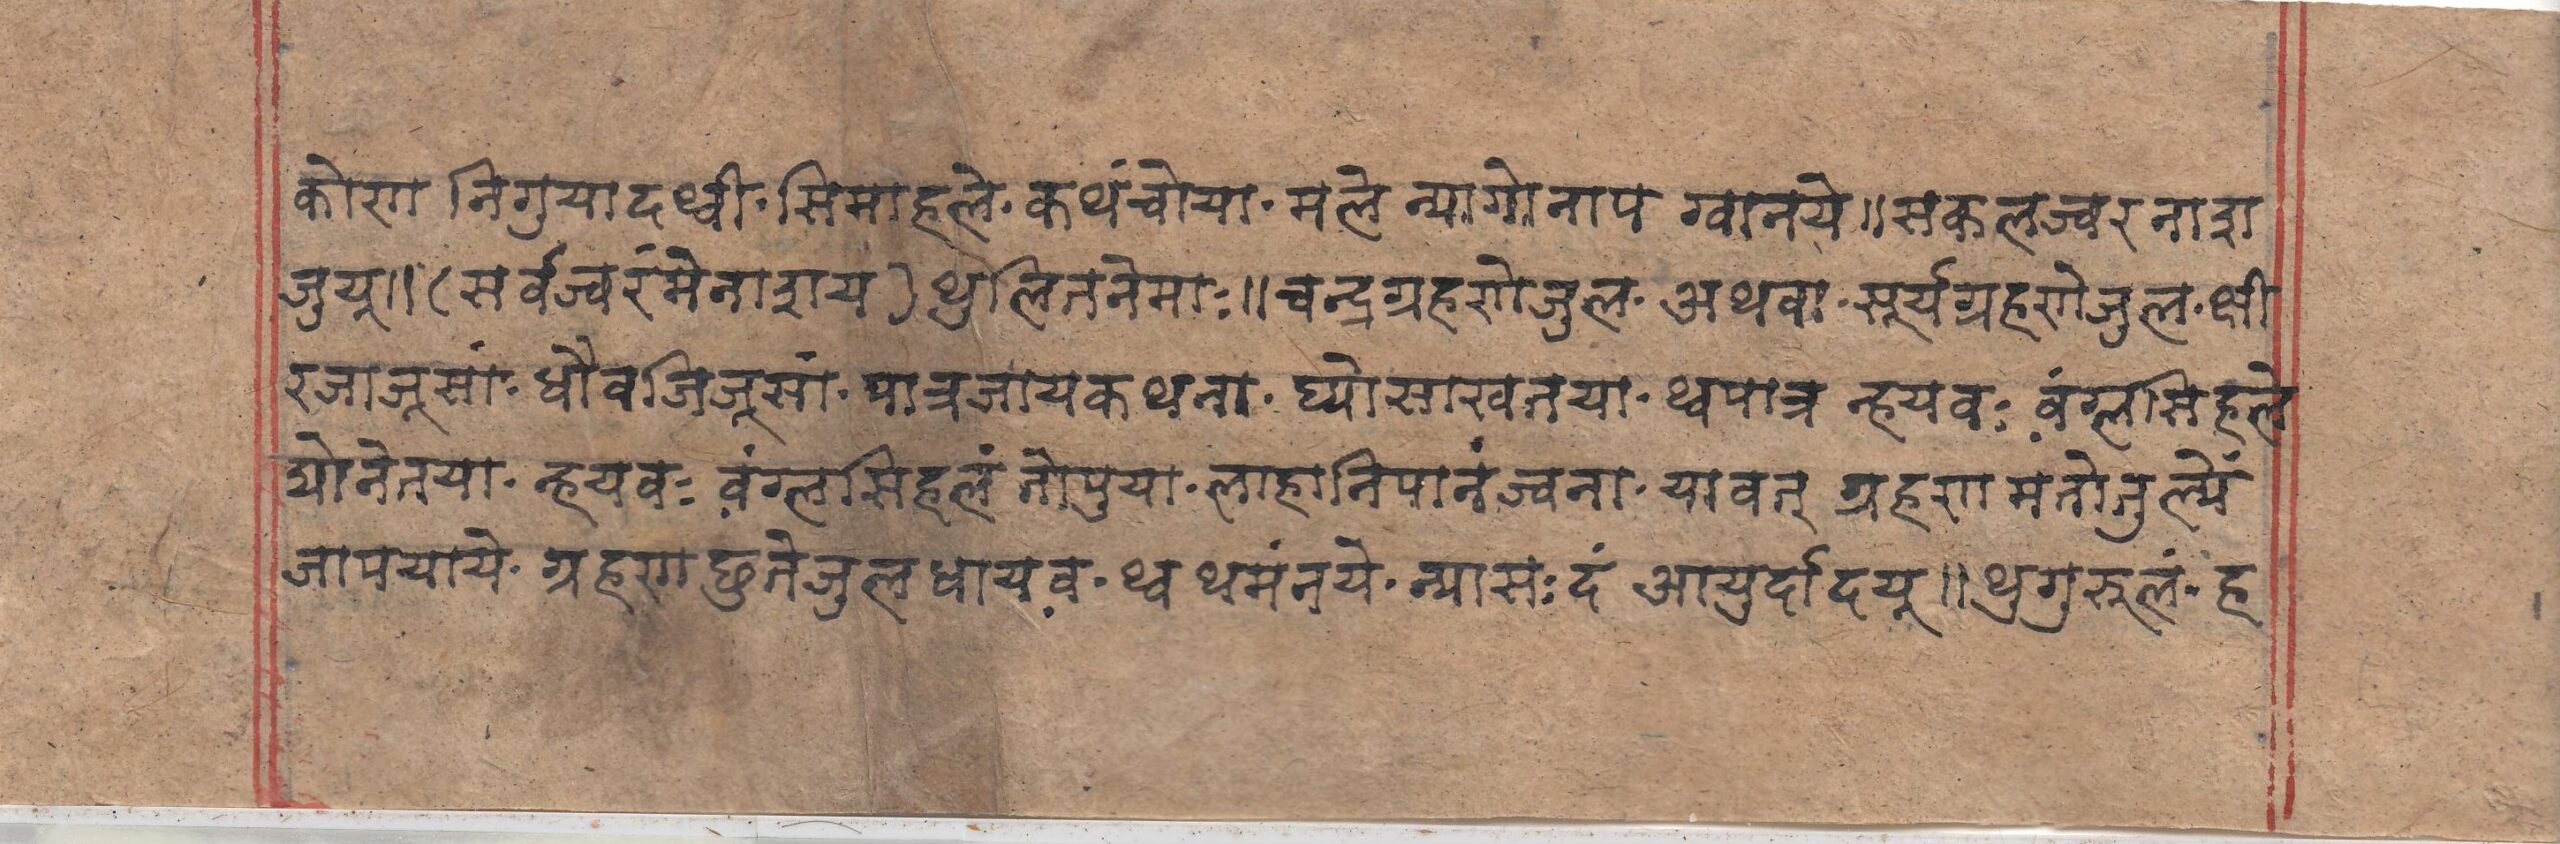 कोरण निगुयादथ्वी॰सिमाहले॰कथंचोया॰मले न्यागोनाप ग्वानये॥सकलज्वरनारा
जुयू॥(सर्वज्वरंमेनाराय)थुलिततेमाः॥चन्द्रग्रहणोजुल॰अथवा॰सूर्यग्रहणेजुल॰क्षी
रजाजूसां॰धौवजिजूसां॰पात्रजायकथना॰घ्योसाखतया॰थ्वपात्र न्हयवः वंग्लसिहले
द्योनेतया॰न्हयवः वंग्लसिहलं तोपुया॰लाहानिपानंज्वना॰यावत् ग्रहण मतोतुल्यें
जापयाये॰ग्रहण छुतेजुलधायव॰थ्व थमंनये॰न्यासःदं आयुर्दादयू॥थुगुरुलं॰ह